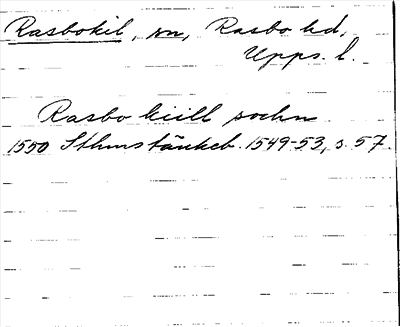 Rasbokil, sn, Rasbo hd,
Upps. l.
Rasbo kiill sochn
1550 Sthms tänkeb. 1549-53, s. 57.